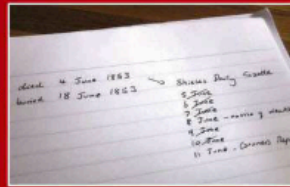 died 4 June 1863 → Shields Daily Gazette
buried 18 June 1863
5 June
6 June
7 June
8 June - notice of death
9 June
10 June
11 June - Coroners Rep